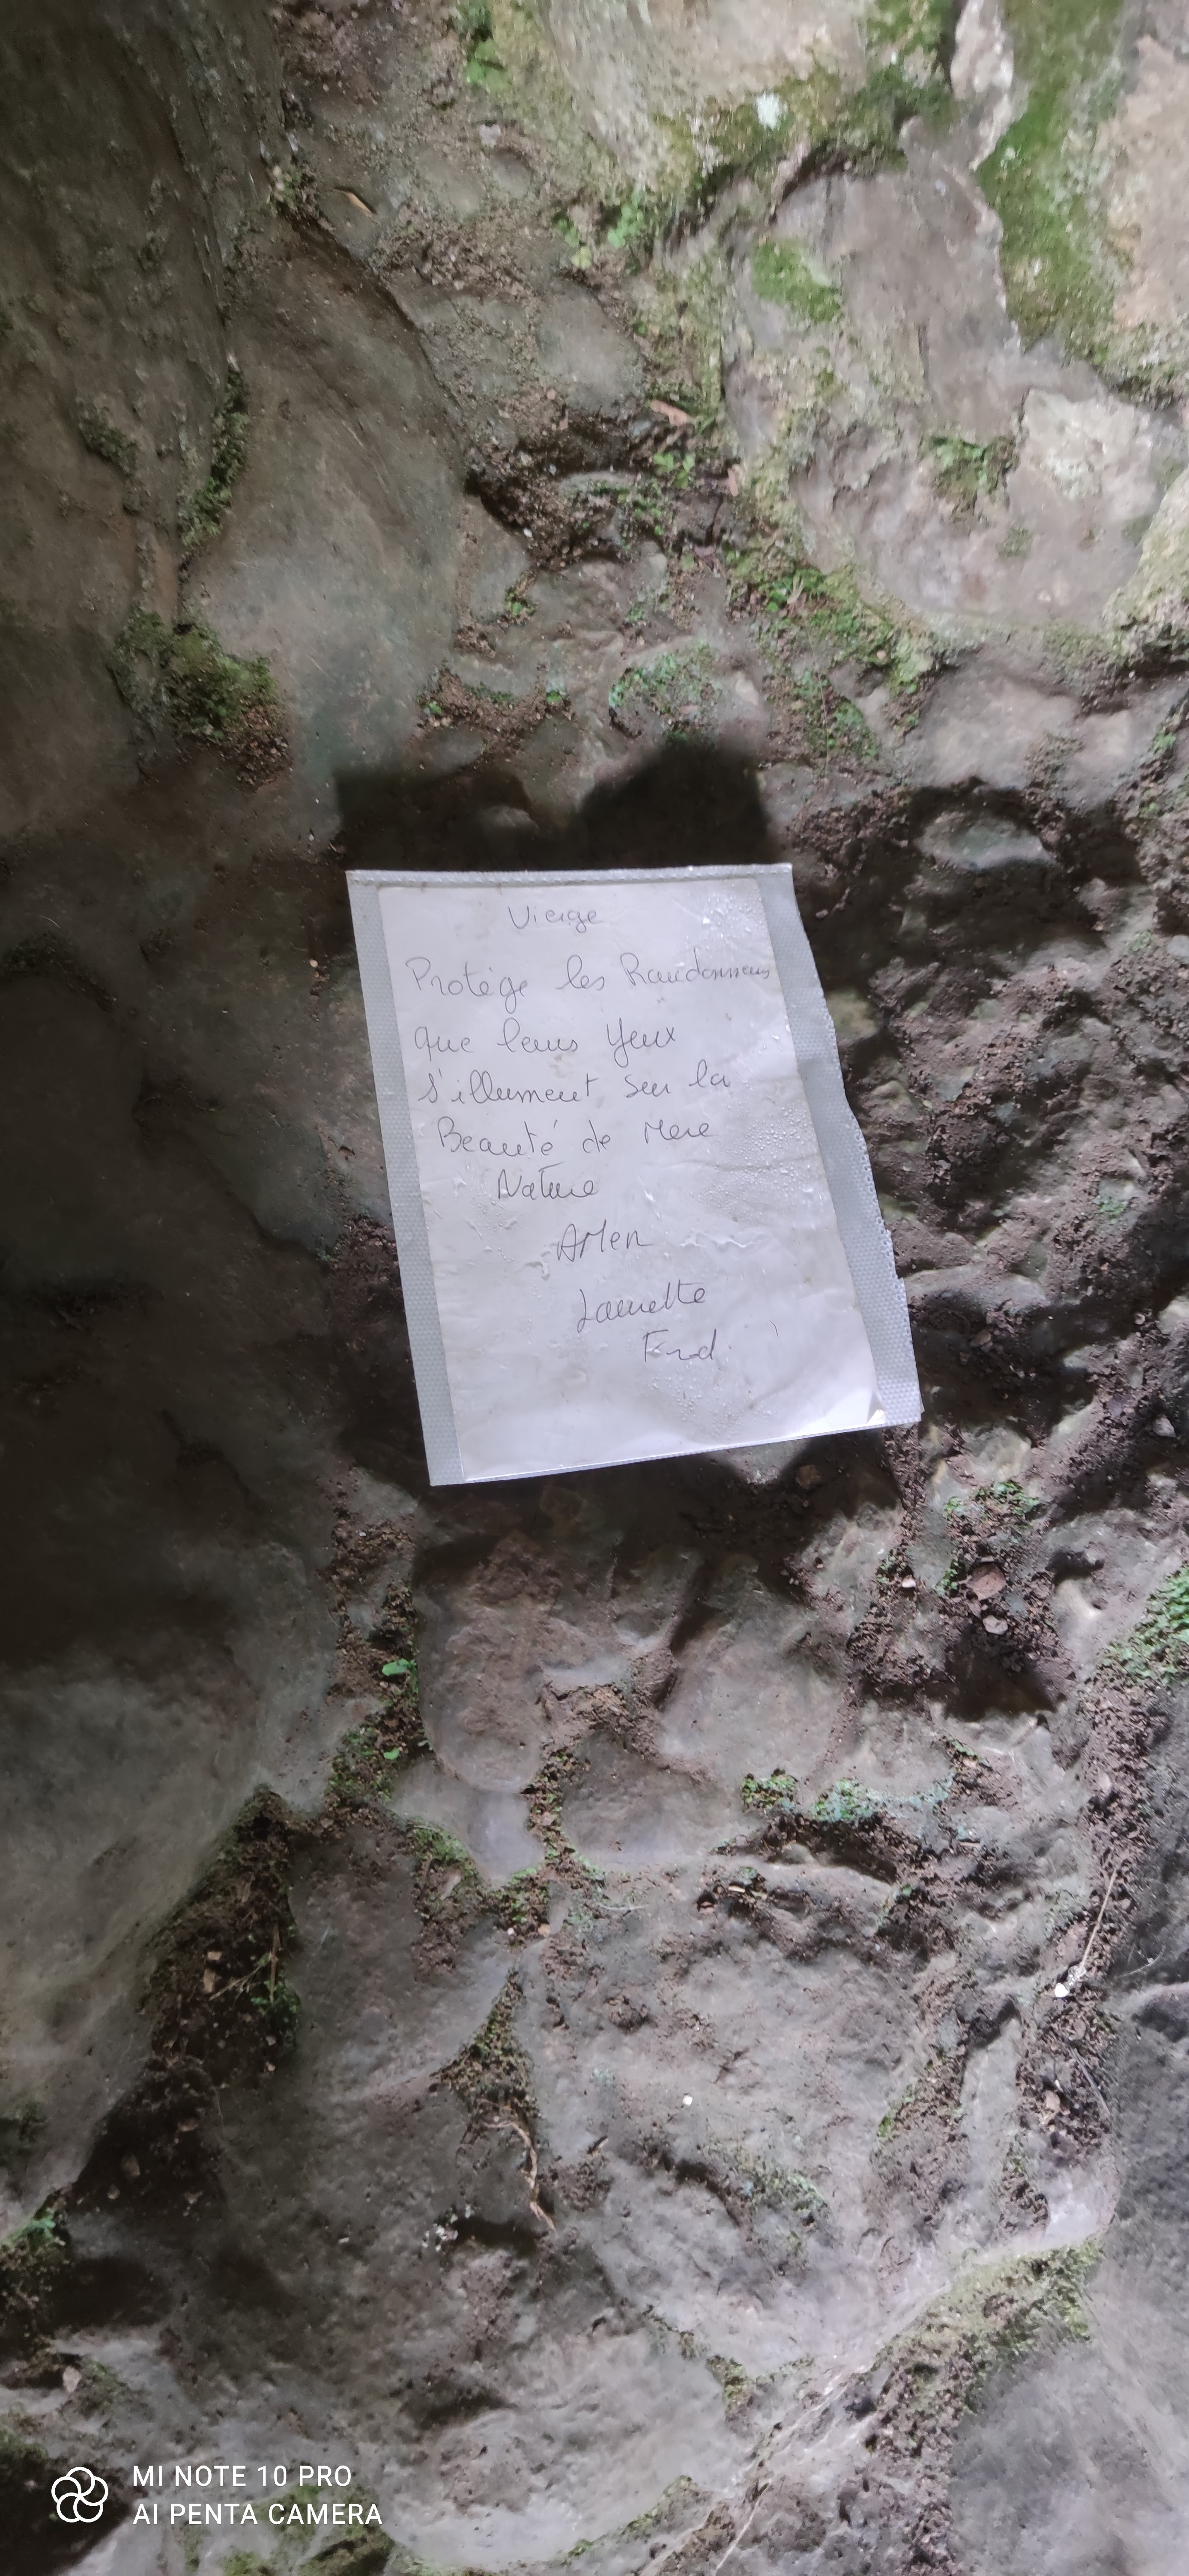 Vierge
Protège les Randonneurs
que leurs Yeux
s'illument sur la
Beauté de Mere
Nature
AMen
Fred
MI NOTE 10 PRO
AI PENTA CAMERA